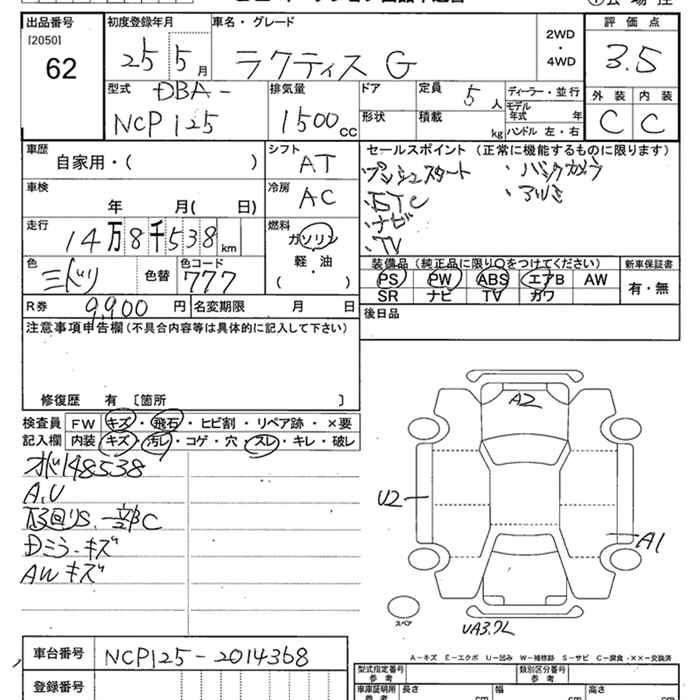 出品番号 初度登録年月 車名・グレード 評価点
[2050]
62 25 5月 ラクティス G 2WD・4WD 3.5
型式 排気量 ドア 定員 5人 ディーラー・並行 外装 内装
DBA-
NCP125 1500cc 形状 積載 kg モデル年式 年 C C
ハンドル 左・右
車歴 シフト セールスポイント (正常に機能するものに限ります)
自家用・( ) AT プッシュスタート ・バックカメラ
車検 冷房 ・ETC ・アルミ
年 月( 日) AC ・ナビ
走行 燃料 ・TV
14万8千538km ガソリン
軽・油
( )
色 色替 色コード 装備品 (純正品に限り○をつけてください) 新車保証書
ミドリ 777 PS PW ABS エアB AW 有・無
SR ナビ TV カワ
R券 9,900円 名変期限 月 日 後日品
注意事項申告欄 (不具合内容等は具体的に記入して下さい)
修復歴 有 [箇所 ]
検査員 FW キズ・飛石・ヒビ割・リペア跡・×要
記入欄 内装 キズ・汚レ・コゲ・穴・スレ・キレ・破レ
オド148538
A,U
下回りS、一部C
Dミラーキズ
AWキズ
A2
U2
A1
スペア
UA3.ワレ
A-キズ E-エクボ U-凹み W-補修跡 S-サビ C-腐食 ・××-交換済
車台番号 NCP125-2014368
型式指定番号 参考 類別区分番号 参考
登録番号
車庫証明用 参考 長さ cm 幅 cm 高さ cm